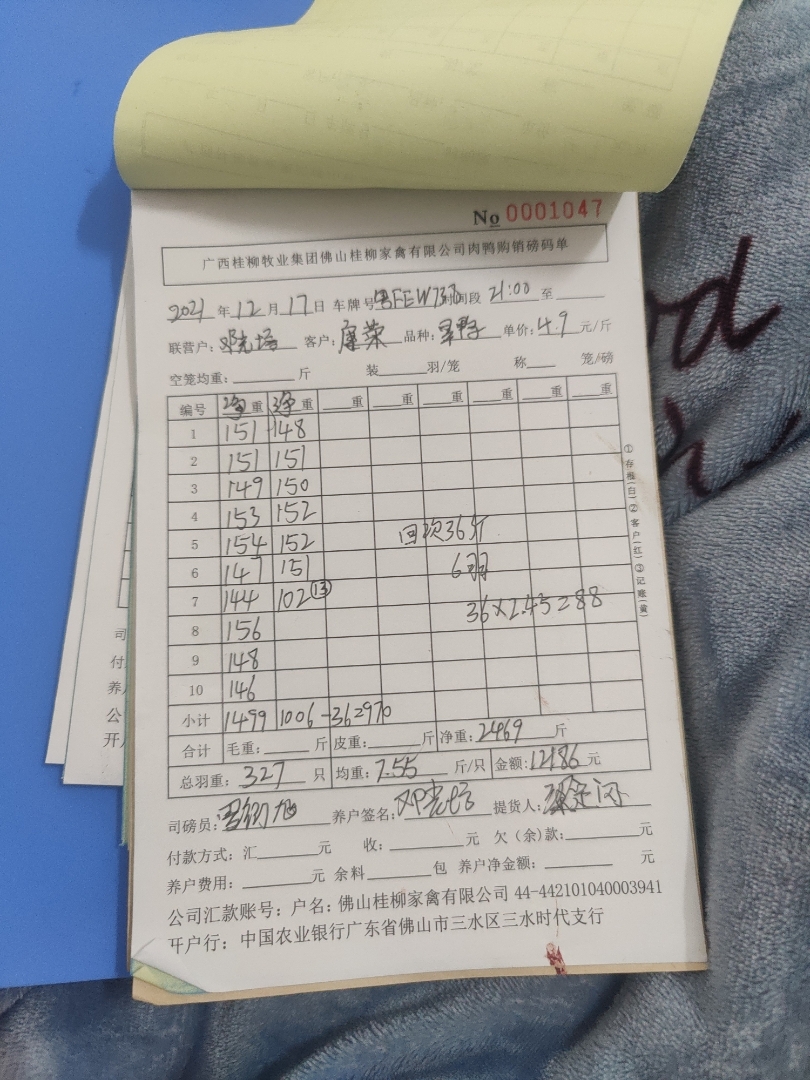 No 0001047
广西桂柳牧业集团佛山桂柳家禽有限公司肉鸭购销磅码单
2021 年 12 月 17 日 车牌号 粤FEW733 时间段 21:00 至
联营户: 客户: 康荣 品种: 单价: 4.9 元/斤
空笼均重: 斤 装 羽/笼 称 笼/磅
编号 净重 净重 重 重 重 重 重 重
1 151 148
2 151 151
3 149 150
4 153 152
5 154 152 回收36斤
6 147 151 6羽
7 144 102 ⑬
8 156 36×2.45=88
9 148
10 146
小计 1499 1006-36=970
合计 毛重: 斤 皮重: 斤 净重: 2469 斤
总羽重: 327 只 均重: 7.55 斤/只 金额: 12186 元
司磅员: 养户签名: 提货人:
付款方式: 汇 元 收: 元 欠(余)款: 元
养户费用: 元 余料 包 养户净金额: 元
公司汇款账号: 户名: 佛山桂柳家禽有限公司 44-442101040003941
开户行: 中国农业银行广东省佛山市三水区三水时代支行
①存根(白)②客户(红)③记账(黄)
司
付
养
公
开